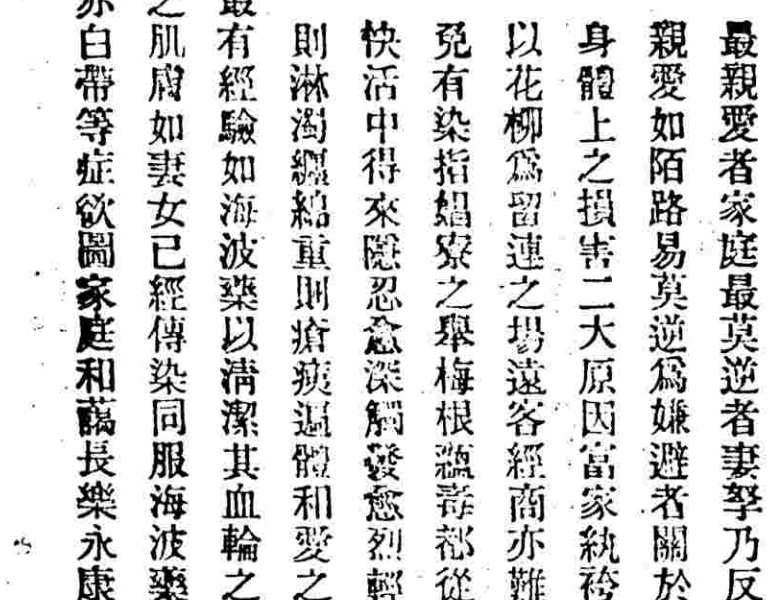 最親愛者家庭最莫逆者妻孥乃反
親愛如陌路易莫逆爲嫌避者關於
身體上之損害二大原因富家紈袴
以花柳爲留連之場遠客經商亦難
免有染指娼寮之舉梅根蘊毒都從
快活中得來隱忍愈深觸發愈烈輕
則淋濁纏綿重則瘡痍遍體和愛之
最有經驗如海波藥以清潔其血輪之
之肌膚如妻女已經傳染同服海波藥
赤白帶等症欲圖家庭和藹長樂永康